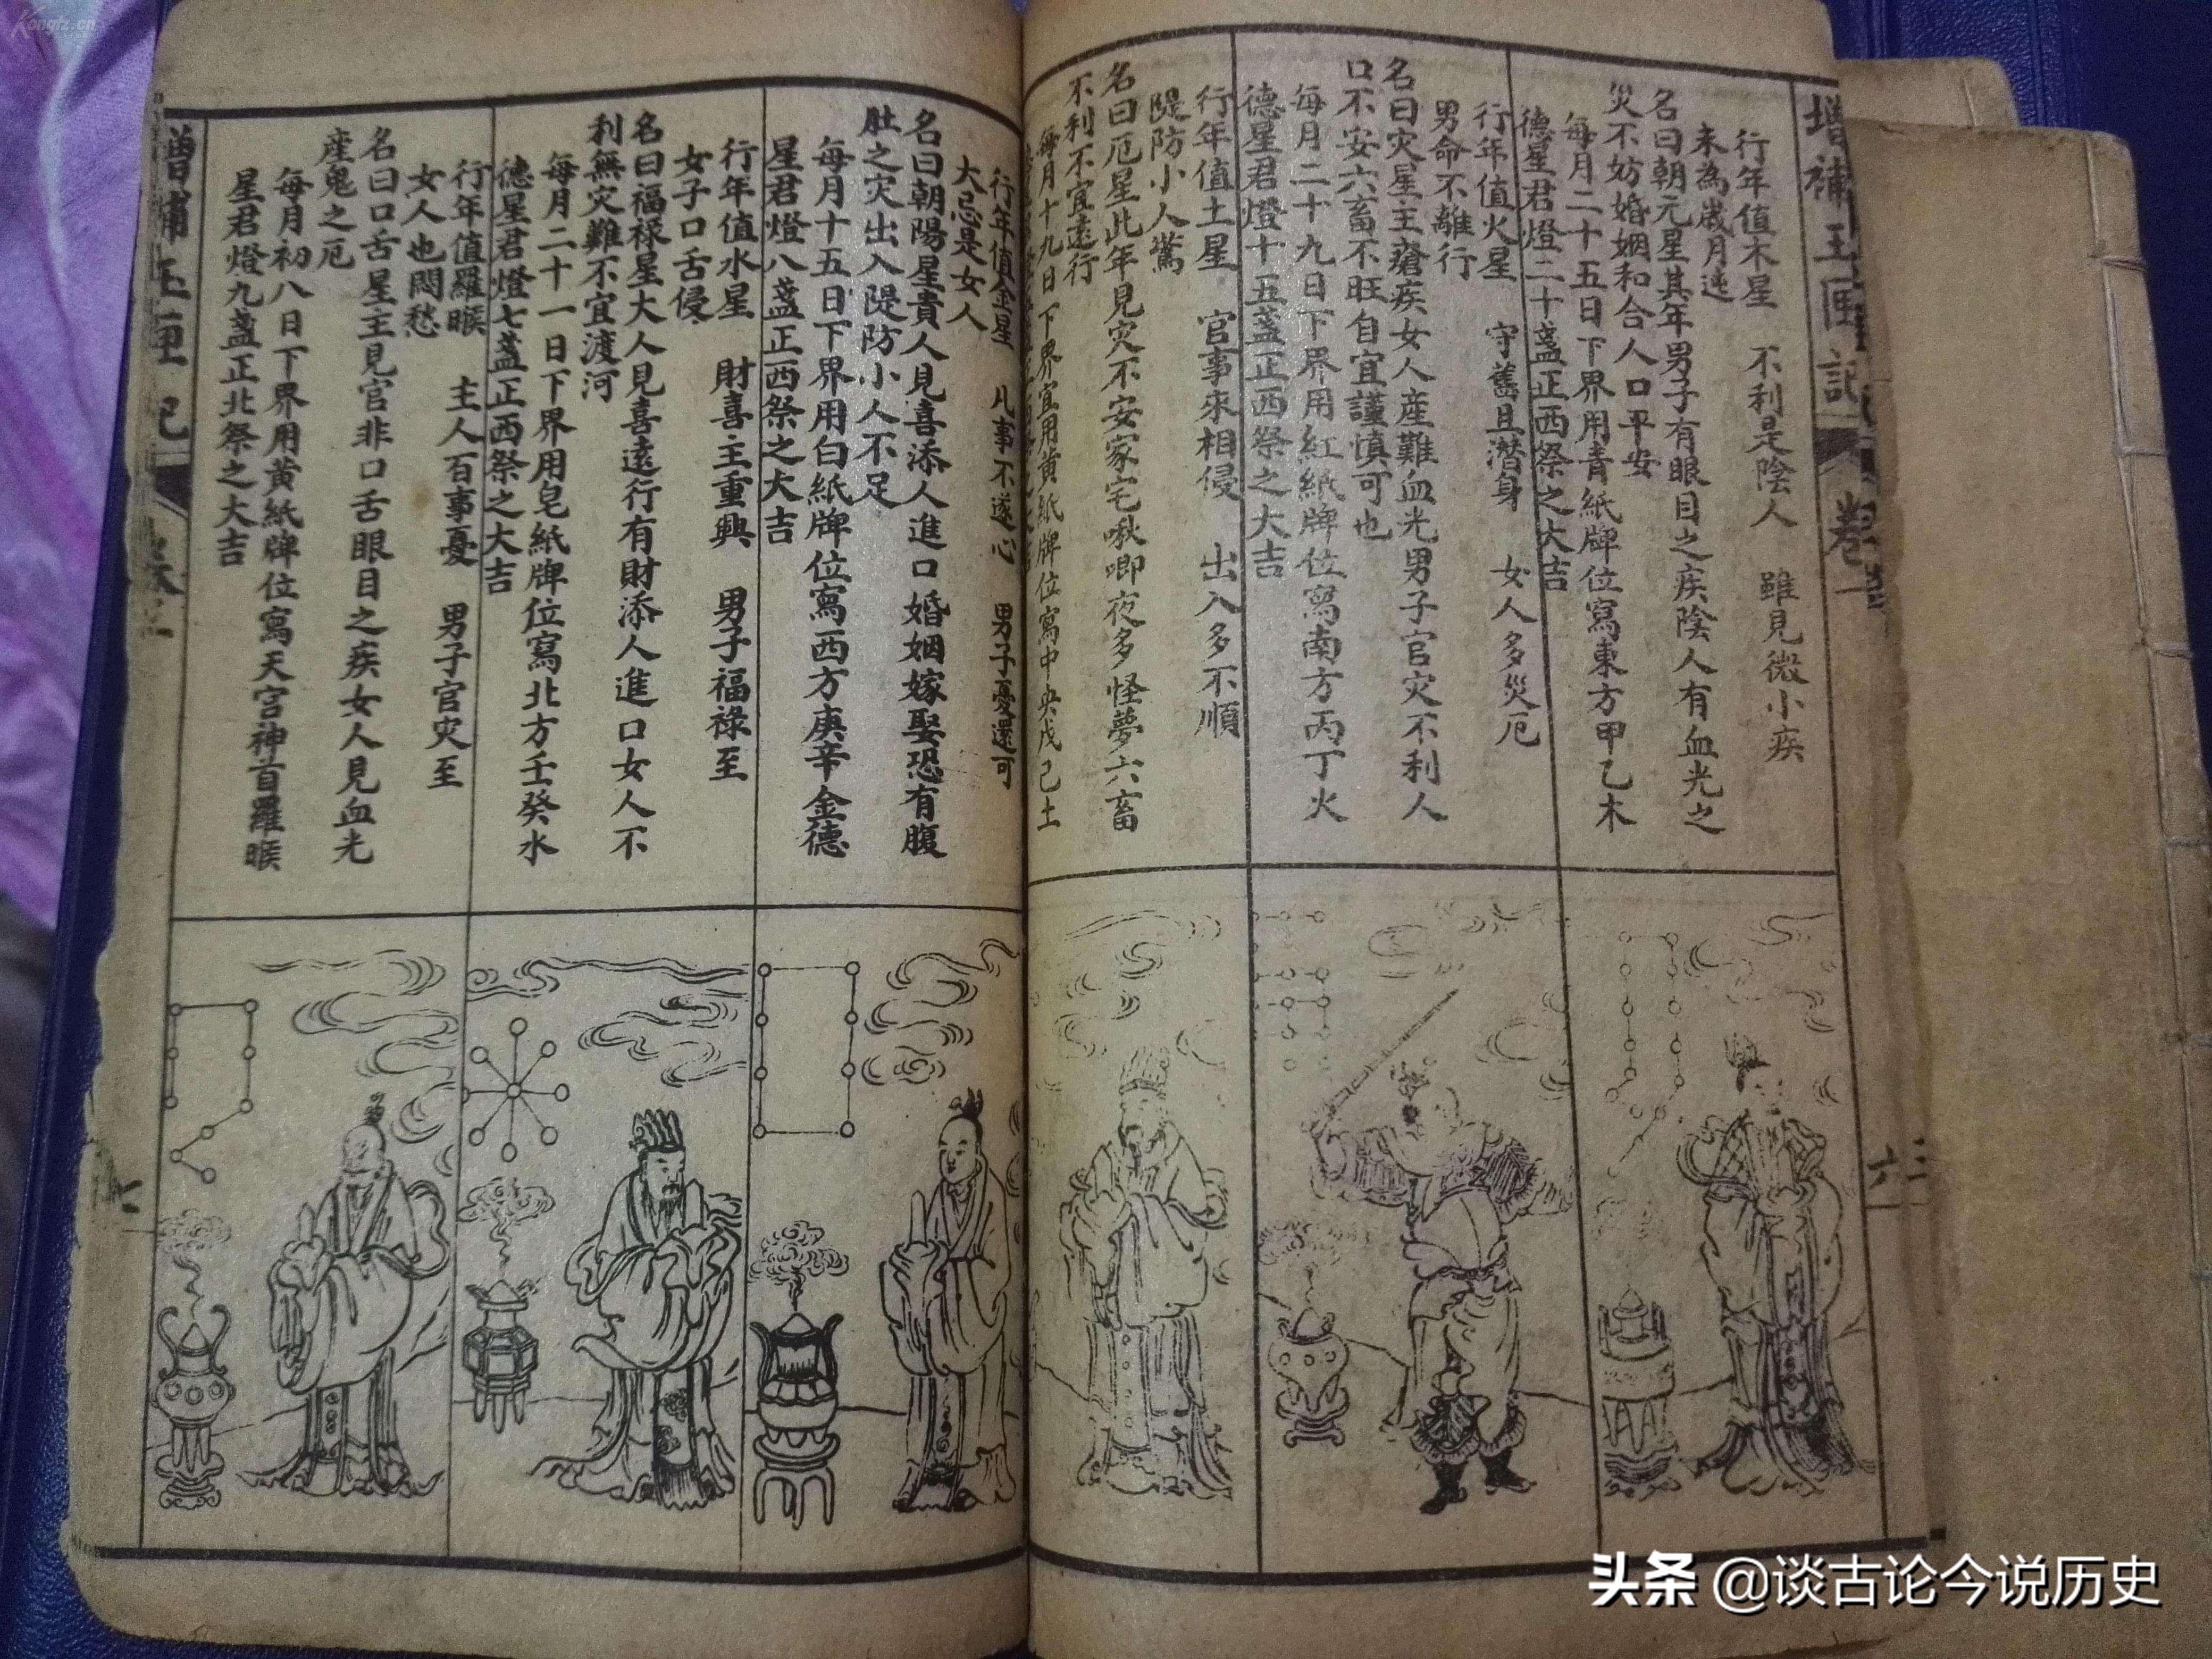 增補玉匣記
卷
行年值木星 不利是陰人 雖見微小疾
未為歲月迍
名曰朝元星其年男子有眼目之疾陰人有血光之
災不妨婚姻和合人口平安
每月二十五日下界用青紙牌位寫東方甲乙木
德星君燈二十盞正西祭之大吉
行年值火星 守舊且潛身 女人多災厄
男命不離行
名曰灾星主瘡疾女人産難血光男子官灾不利人
口不安六畜不旺自宜謹慎可也
每月二十九日下界用紅紙牌位寫南方丙丁火
德星君燈十五盞正西祭之大吉
行年值土星 官事來相侵 出入多不順
隄防小人驚
名曰厄星此年見灾不安家宅啾唧夜多怪夢六畜
不利不宜遠行
每月十九日下界宜用黄紙牌位寫中央戊己土
六
行年值金星 凡事不遂心 男子憂還可
大忌是女人
名曰朝陽星貴人見喜添人進口婚姻嫁娶恐有腹
肚之灾出入隄防小人不足
每月十五日下界用白紙牌位寫西方庚辛金德
星君燈八盞正西祭之大吉
行年值水星 財喜主重興 男子福祿至
女子口舌侵
名曰福禄星大人見喜遠行有財添人進口女人不
利無灾難不宜渡河
每月二十一日下界用皂紙牌位寫北方壬癸水
德星君燈七盞正西祭之大吉
行年值羅睺 主人百事憂 男子官灾至
女人也悶愁
名曰口舌星主見官非口舌眼目之疾女人見血光
産鬼之厄
每月初八日下界用黄紙牌位寫天宮神首羅睺
星君燈九盞正北祭之大吉
增補玉匣記
七
Kongfz.cn
头条 @谈古论今说历史